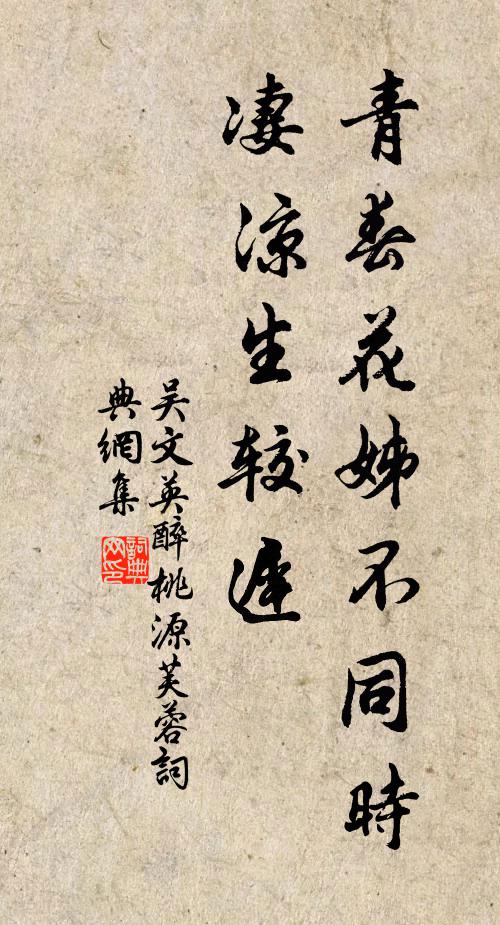 青春花姊不同時
凄涼生較遲
吴文英醉桃源芙蓉詞
典網集
詞典網印